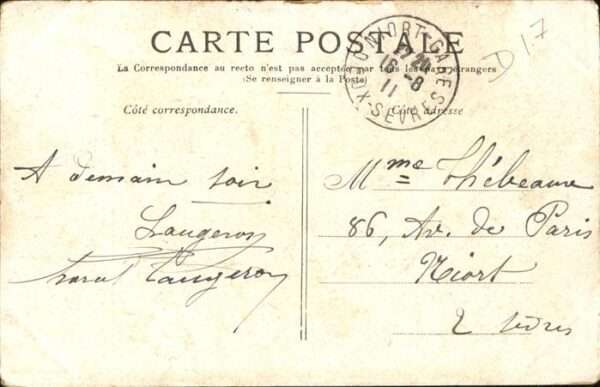 CARTE POSTALE
La Correspondance au recto n'est pas acceptée par tous les pays étrangers
(Se renseigner à la Poste)
NIORT-GARE
DEUX-SEVRES
16 -8
11
D17
Côté correspondance.
Côté adresse
A demain soir
Laugeron
Laugeron
Mme Thébeaume
86, Av. de Paris
Niort
2 Sèvres